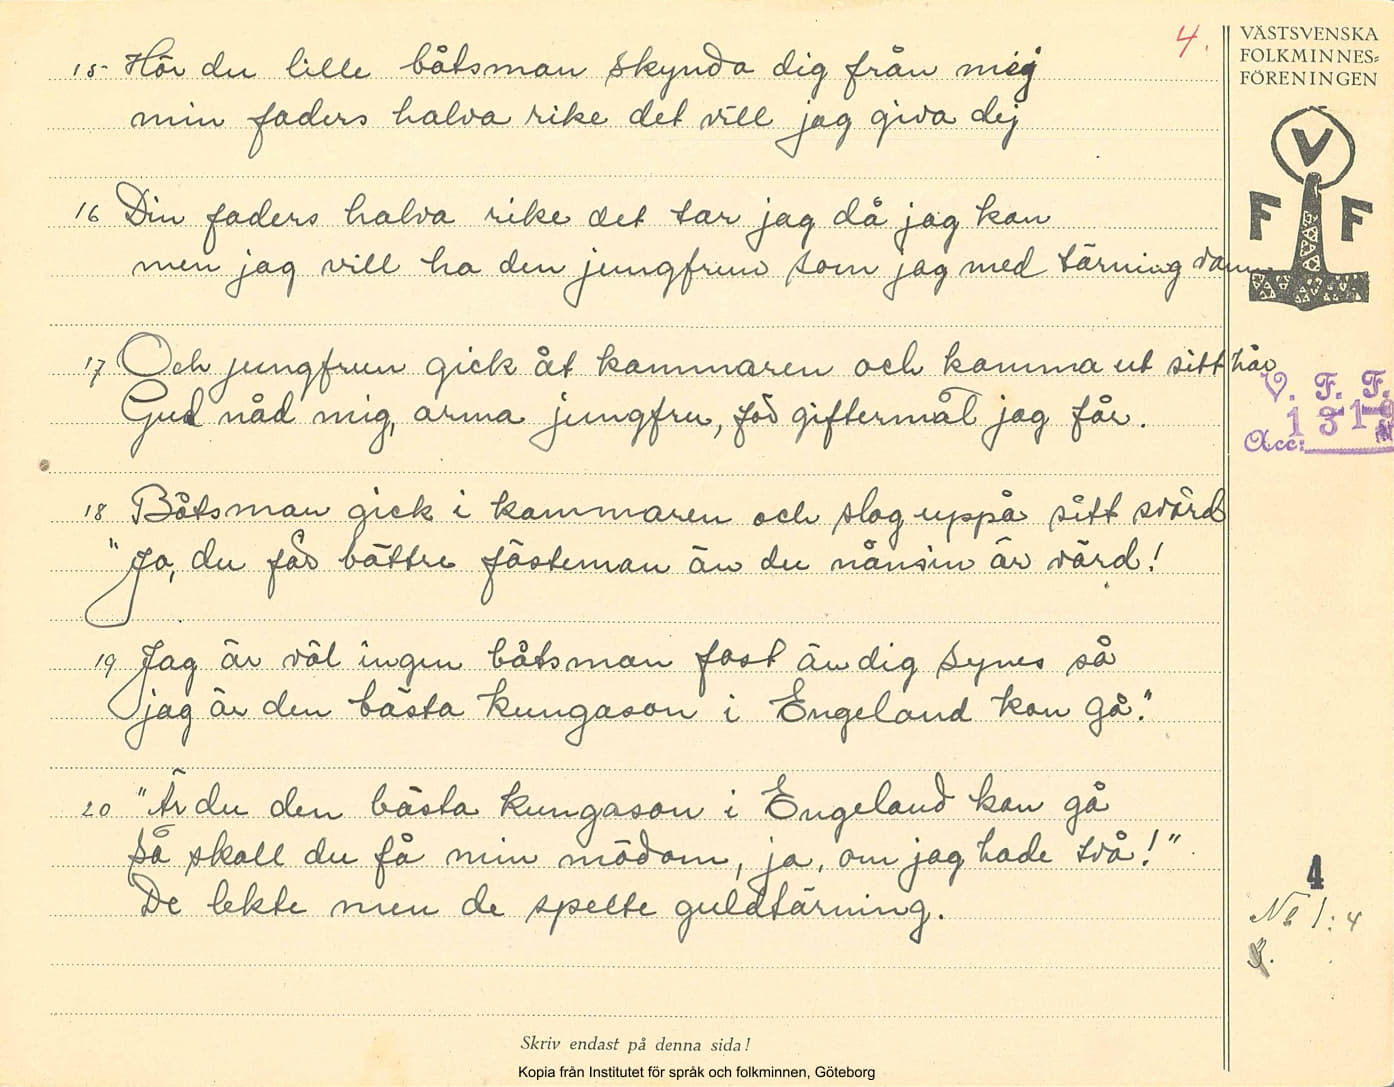 4.
VÄSTSVENSKA
FOLKMINNES-
FÖRENINGEN
V
F F
15 Hör du lille båtsman skynda dig från mig
min faders halva rike det vill jag giva dej
16 Din faders halva rike det tar jag då jag kan
men jag vill ha den jungfrun som jag med tärning vann
17 Och jungfrun gick åt kammaren och kamma ut sitt hår
Gud nåd mig, arma jungfru, för giftermål jag får.
18 Båtsman gick i kammaren och slog uppå sitt svärd
"Ja, du får bättre fästeman än du nånsin är värd!
19 Jag är väl ingen båtsman fast än dig synes så
jag är den bästa kungason i Engeland kan gå."
20 "Är du den bästa kungason i Engeland kan gå
så skall du få min mödom, ja, om jag hade två!"
De lekte men de spelte guldtärning.
V. F. F.
Acc:
4
1:4
Skriv endast på denna sida!
Kopia från Institutet för språk och folkminnen, Göteborg